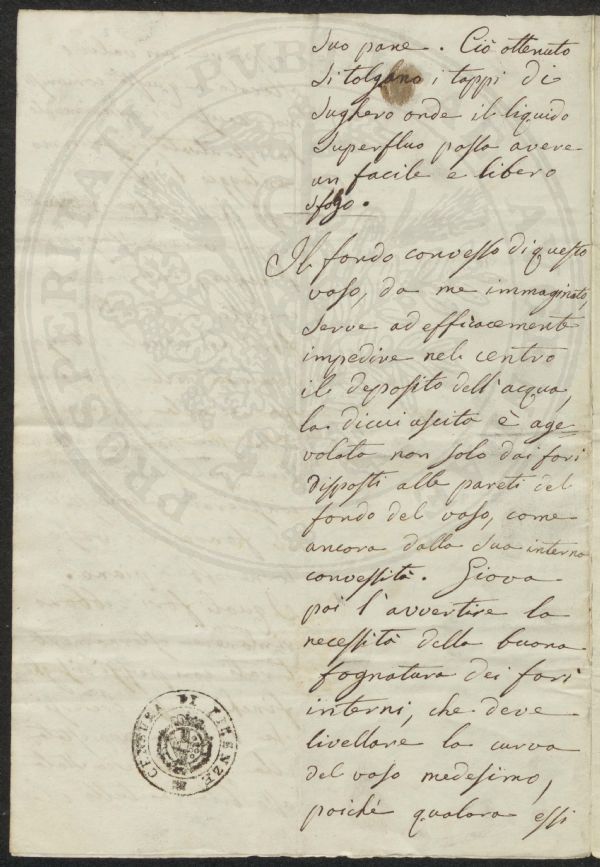 suo pane. Ciò ottenuto
si tolgano i tappi di
sughero onde il liquido
superfluo possa avere
un facile e libero
sfogo.
Il fondo convesso di questo
vaso, da me immaginato,
serve ad efficacemente
impedire nel centro
il deposito dell'acqua,
la di cui uscita è age-
volata non solo dai fori
disposti alle pareti del
fondo del vaso, come
ancora dalla sua interna
convessità. Giova
poi l'avvertire la
necessità della buona
fognatura dei fori
interni, che deve
livellare la curva
del vaso medesimo,
poichè qualora essi
CENSURA DI FIRENZE
PROSPERITATI PUBLICAE